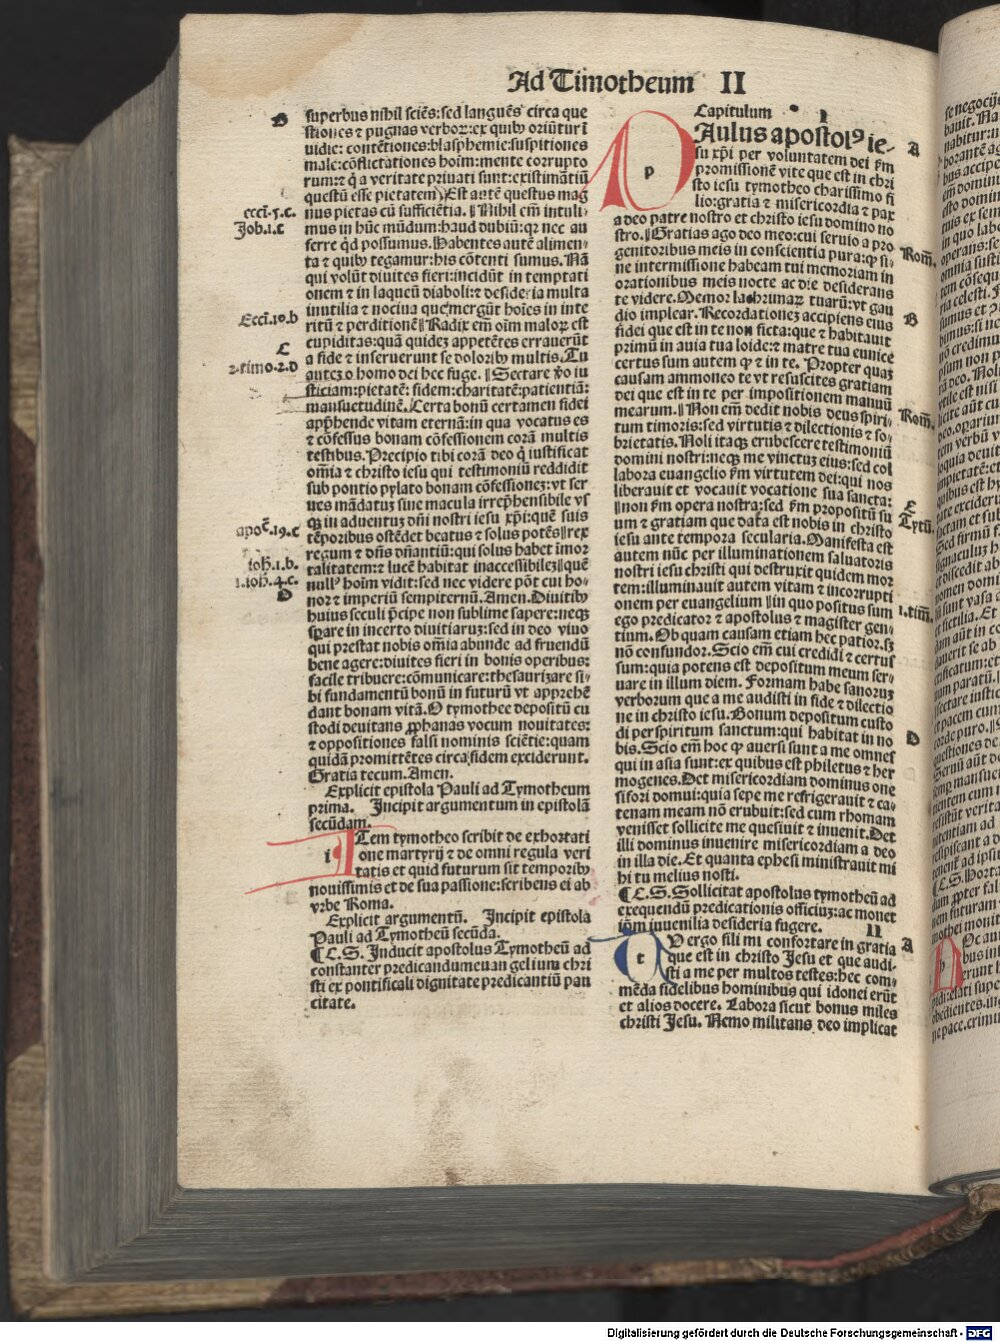 Ad Timotheum II
B
superbus nihil sciẽs: sed languẽs circa que
stiones ⁊ pugnas verboꝝ: ex quibꝰ oriũtur ĩ
uidie: contẽtiones: blasphemie: suspitiones
male: cõflictationes hoĩm: mente corrupto
rum: ⁊ q̃ a veritate priuati sunt: existimãtiũ
questũ esse pietatem. Est autẽ questus mag
nus pietas cũ sufficiẽtia. Nihil em̃ intuli-
mus in hũc mũdum: haud dubiũ: qꝛ nec au
ferre q̃d possumus. Habentes autẽ alimen-
ta ⁊ quibꝰ tegamur: his cõtenti sumus. Nã
qui volũt diuites fieri: incidũt in temptati
onem ⁊ in laqueũ diaboli: ⁊ desideria multa
inutilia ⁊ nociua que mergũt hoĩes in inte
ritũ ⁊ perditionẽ. Radix em̃ oĩm maloꝝ est
cupiditas: quã quidẽ appetẽtes errauerũt
a fide ⁊ inseruerunt se doloribꝰ multis. Tu
auteꝫ o homo dei hec fuge. Sectare v̊o iu
sticiam: pietatẽ: fidem: charitatẽ: patientiã:
mansuetudinẽ. Certa bonũ certamen fidei
app̃hende vitam eternã: in qua vocatus es
⁊ cõfessus bonam cõfessionem corã multis
testibus. Precipio tibi corã deo q̃ iustificat
om̃ia ⁊ christo iesu qui testimoniũ reddidit
sub pontio pylato bonam cõfessioneꝫ: vt ser
ues mãdatuꝫ sine macula irrep̃hensibile vs
qꝫ in aduentuꝫ dñi nostri iesu xp̃i: quẽ suis
tẽporibus ostẽdet beatus ⁊ solus potẽs rex
regum ⁊ dñs dñantiũ: qui solus habet ĩmor
talitatem: ⁊ lucẽ habitat inaccessibileꝫ quẽ
nullꝰ hoĩm vidit: sed nec videre põt cui ho-
nor ⁊ imperiũ sempiternũ. Amen. Diuitibꝰ
huius seculi p̃cipe non sublime sapere: neqꝫ
sꝑare in incerto diuitiaruꝫ: sed in deo viuo
qui prestat nobis om̃ia abunde ad fruendũ
bene agere: diuites fieri in bonis operibus:
facile tribuere: cõmunicare: thesaurizare si-
bi fundamentũ bonũ in futurũ vt apprehẽ
dant bonam vitã. O tymothee depositũ cu
stodi deuitans ꝓphanas vocum nouitates:
⁊ oppositiones falsi nominis sciẽtie: quam
quidã promittẽtes circa fidem exciderunt.
Gratia tecum. Amen.
Explicit epistola Pauli ad Tymotheum
prima. Incipit argumentum in epistolã
secũdam.
i
ITem tymotheo scribit de exhortati
one martyrij ⁊ de omni regula veri
tatis et quid futurum sit temporibꝰ
nouissimis et de sua passione: scribens ei ab
vrbe Roma.
Explicit argumentũ. Incipit epistola
Pauli ad Tymotheũ secũda.
¶ C. S. Inducit apostolus Tymotheũ ad
constanter predicandum euangelium chri
sti ex pontificali dignitate predicantiũ pau
citate.
eccĩ.5.c.
Job.1.c
Eccĩ.10.b
C
2.timo.2.d
apoc̃.19.c
ioh̃.1.b.
1.ioh̃.4.c.
D
Capitulum I
p
PAulus apostolꝰ ie-
su xp̃i per voluntatem dei ẜm
promissionẽ vite que est in chri
sto iesu tymotheo charissimo fi
lio: gratia ⁊ misericordia ⁊ pax
a deo patre nostro et christo iesu domino no
stro. Gratias ago deo meo: cui seruio a pro
genitoribus meis in conscientia pura: ꝙ si-
ne intermissione habeam tui memoriam in
orationibus meis nocte ac die desiderans
te videre. Memor lachrimaꝝ tuarũ: vt gau
dio implear. Recordationeꝫ accipiens eius
fidei que est in te non ficta: que ⁊ habitauit
primũ in auia tua loide: ⁊ matre tua eunice
certus sum autem ꝙ ⁊ in te. Propter quaꝫ
causam ammoneo te vt resuscites gratiam
dei que est in te per impositionem manuũ
mearum. Non em̃ dedit nobis deus spiri-
tum timoris: sed virtutis ⁊ dilectionis ⁊ so-
brietatis. Noli itaqꝫ erubescere testimoniũ
domini nostri: neqꝫ me vinctuꝫ eius: sed col
labora euangelio ẜm virtutem dei: qui nos
liberauit et vocauit vocatione sua sancta:
non ẜm opera nostra: sed ẜm propositũ su
um ⁊ gratiam que data est nobis in christo
iesu ante tempora secularia. Manifesta est
autem nũc per illuminationem saluatoris
nostri iesu christi qui destruxit quidem mor
tem: illuminauit autem vitam ⁊ incorrupti
onem per euangelium in quo positus sum
ego predicator ⁊ apostolus ⁊ magister gen-
tium. Ob quam causam etiam hec patior. sꝫ
nõ confundor. Scio em̃ cui credidi ⁊ certus
sum: quia potens est depositum meum ser-
uare in illum diem. Formam habe sanoruꝫ
verborum que a me audisti in fide ⁊ dilectio
ne in christo iesu. Bonum depositum custo
di per spiritum sanctum: qui habitat in no
bis. Scio em̃ hoc ꝙ auersi sunt a me omnes
qui in asia sunt: ex quibus est philetus ⁊ her
mogenes. Det misericordiam dominus one
sifori domui: quia sepe me refrigerauit ⁊ ca-
tenam meam nõ erubuit: sed cum rhomam
venisset sollicite me quesiuit ⁊ inuenit. Det
illi dominus inuenire misericordiam a deo
in illa die. Et quanta ephesi ministrauit mi
hi tu melius nosti.
¶ C. S. Sollicitat apostolus tymotheũ ad
exequendũ predicationis officiuꝫ: ac monet
ip̃m iuuenilia desideria fugere. II
t
TU ergo fili mi confortare in gratia
que est in christo Jesu et que audi-
sti a me per multos testes: hec com-
mẽda fidelibus hominibus qui idonei erũt
et alios docere. Labora sicut bonus miles
christi Jesu. Nemo militans deo implicat
A
Rom̃.
B
Rom̃.
C
Tytũ.
1.tim̃.
D
A
Digitalisierung gefördert durch die Deutsche Forschungsgemeinschaft - DFG